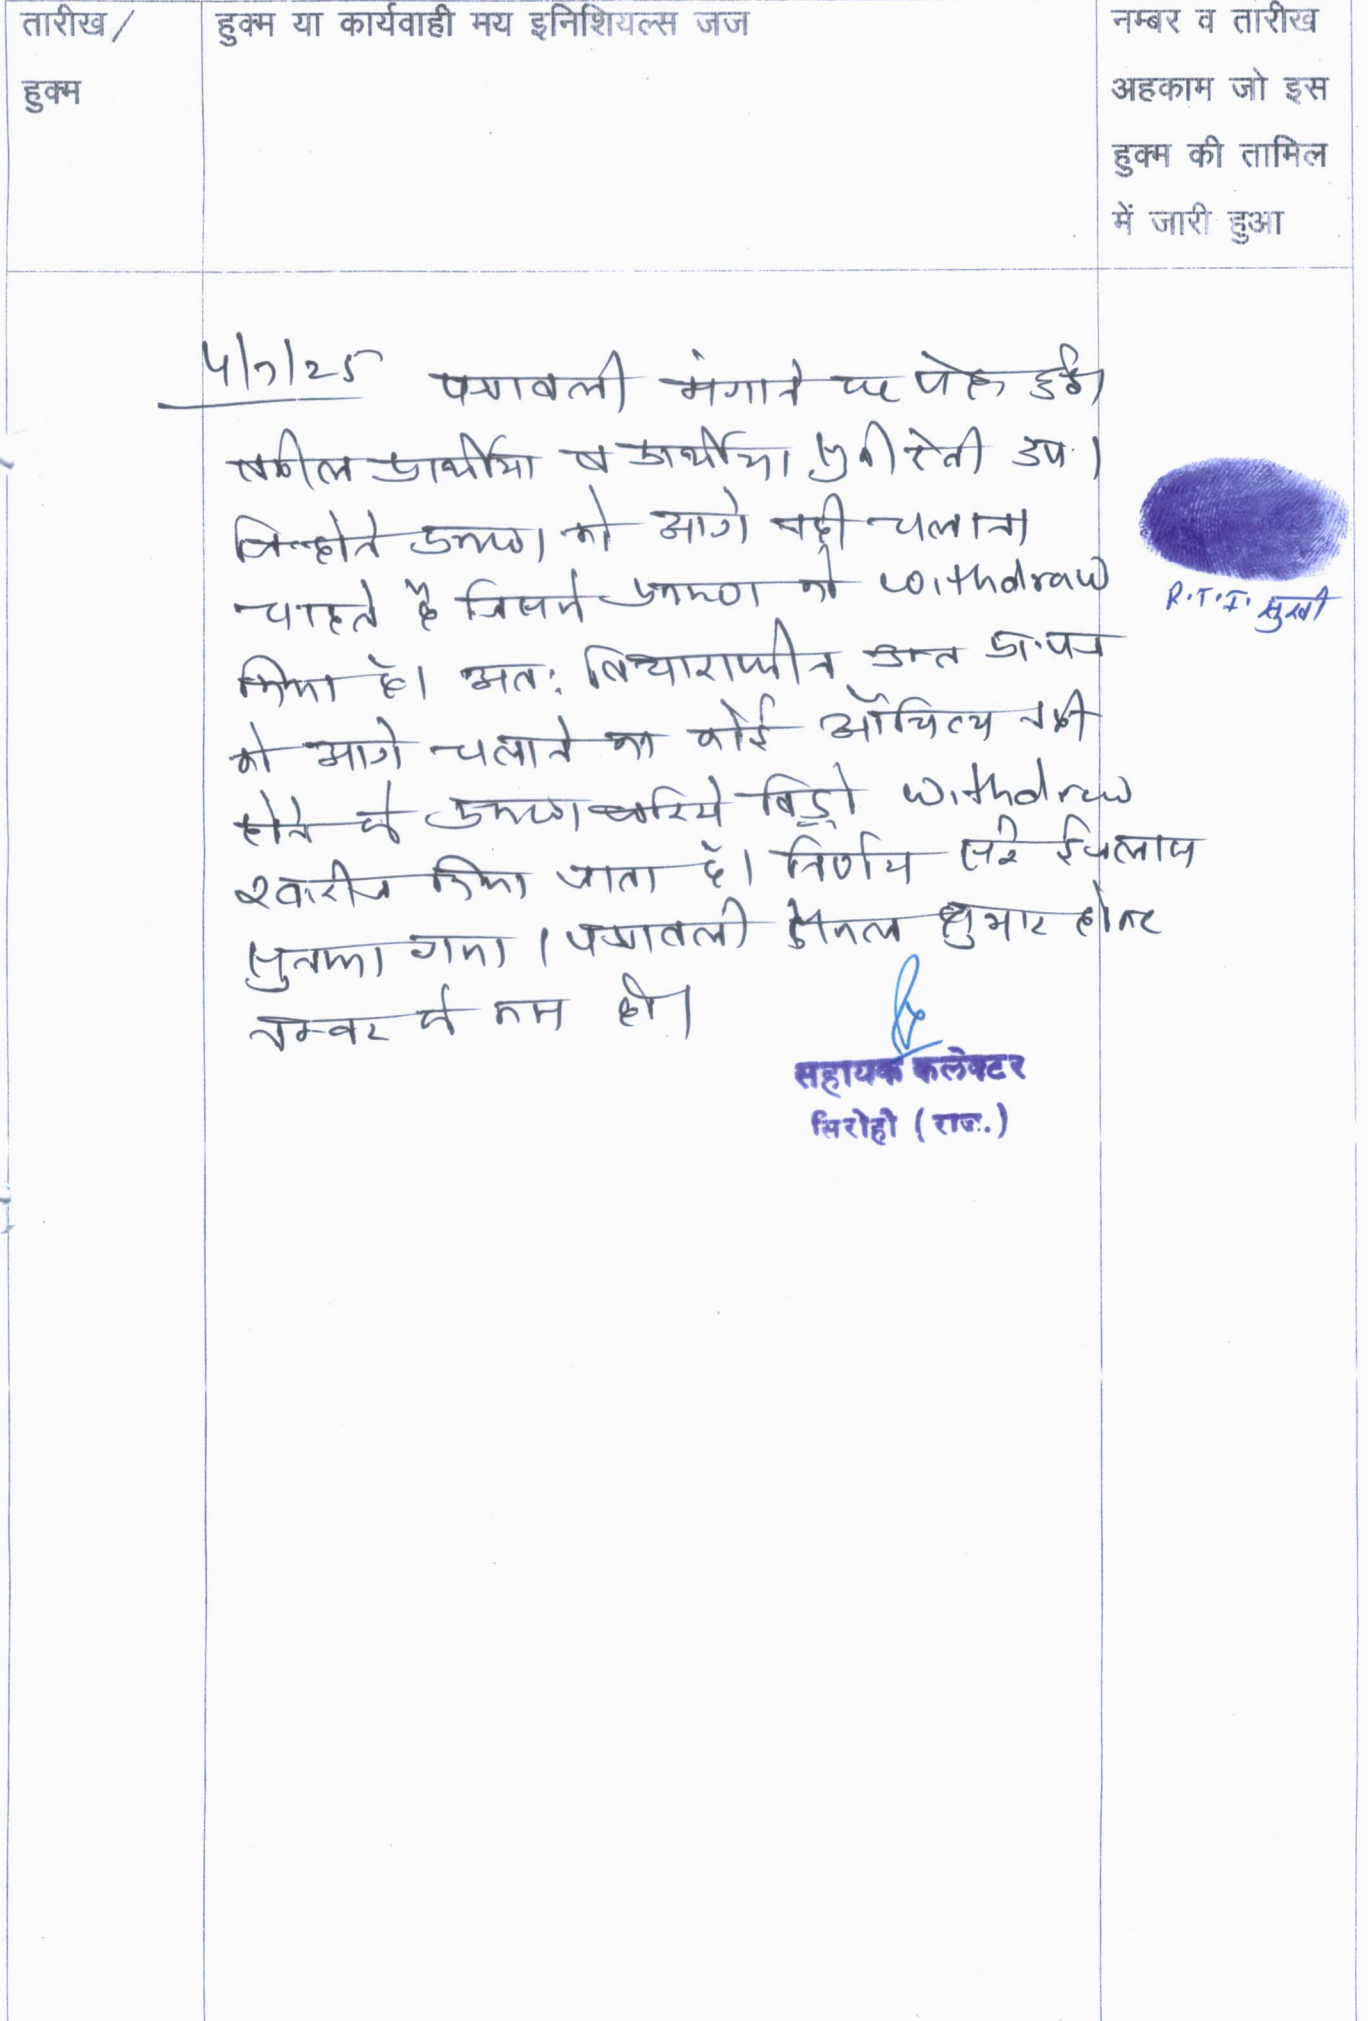 तारीख/
हुक्म
हुक्म या कार्यवाही मय इनिशियल्स जज
नम्बर व तारीख
अहकाम जो इस
हुक्म की तामिल
में जारी हुआ
4/7/25 पत्रावली मंगाने पर पेश हुई।
वकील प्रार्थीया व प्रार्थीया सुखी देवी उप.।
जिन्होने प्रकरण को आगे नही चलाना
चाहते है जिसमे प्रकरण को withdraw
किया है। अतः विचाराधीन उक्त प्रा.पत्र
को आगे चलाने का कोई औचित्य नही
होने से प्रकरण जरिये विड्रो withdraw
खारीज किया जाता है। निर्णय सरे ईजलास
सुनाया गया। पत्रावली फैसल शुमार होकर
नम्बर से कम हो।
R.T.I. सुखी
सहायक कलेक्टर
सिरोही (राज.)